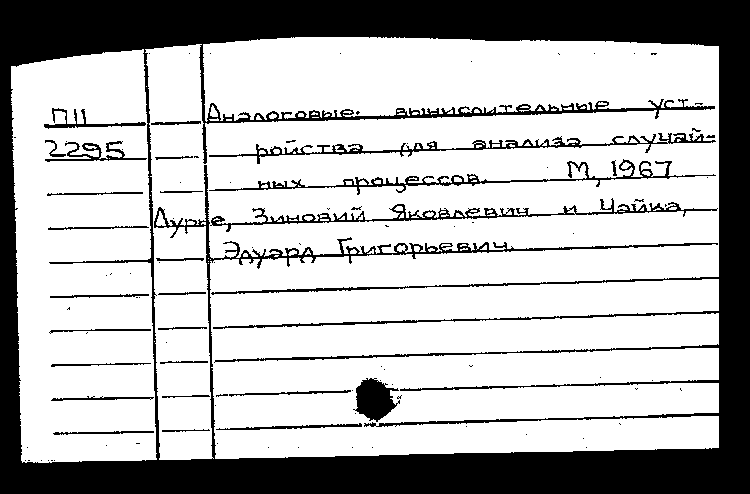 П11 Аналоговые вычислительные уст-
2295 ройства для анализа случай-
ных процессов. М., 1967
Лурье, Зиновий Яковлевич и Чайка,
Эдуард Григорьевич.